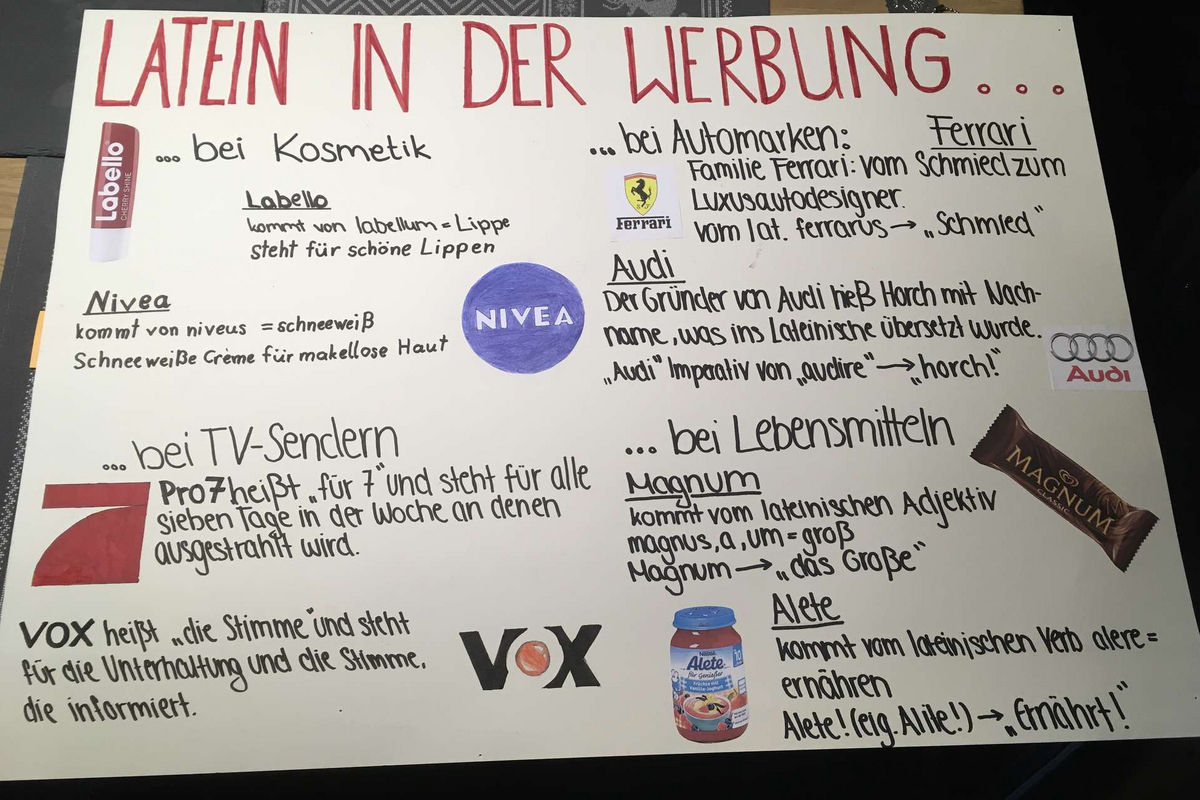 LATEIN IN DER WERBUNG...
... bei Kosmetik
Labello
CHERRY SHINE
Labello
kommt von labellum = Lippe
steht für schöne Lippen
Nivea
kommt von niveus = schneeweiß
Schneeweiße Crème für makellose Haut
NIVEA
... bei Automarken: Ferrari
Familie Ferrari: vom Schmied zum
Luxusautodesigner.
vom lat. ferrarus → „Schmied“
Ferrari
Audi
Der Gründer von Audi hieß Horch mit Nach-
name, was ins Lateinische übersetzt wurde.
„Audi“ Imperativ von „audire“ → „horch!“
Audi
... bei TV-Sendern
Pro7 heißt „für 7“ und steht für alle
sieben Tage in der Woche an denen
ausgestrahlt wird.
VOX heißt „die Stimme“ und steht
für die Unterhaltung und die Stimme,
die informiert.
VOX
... bei Lebensmitteln
Magnum
kommt vom lateinischen Adjektiv
magnus, a, um = groß
Magnum → „das Große“
MAGNUM
CLASSIC
Alete
kommt vom lateinischen Verb alere =
ernähren
Alete! (eig. Alite!) → „Ernährt!“
Nestlé
Alete
für Genießer
Früchte mit
Vanille-Joghurt
10